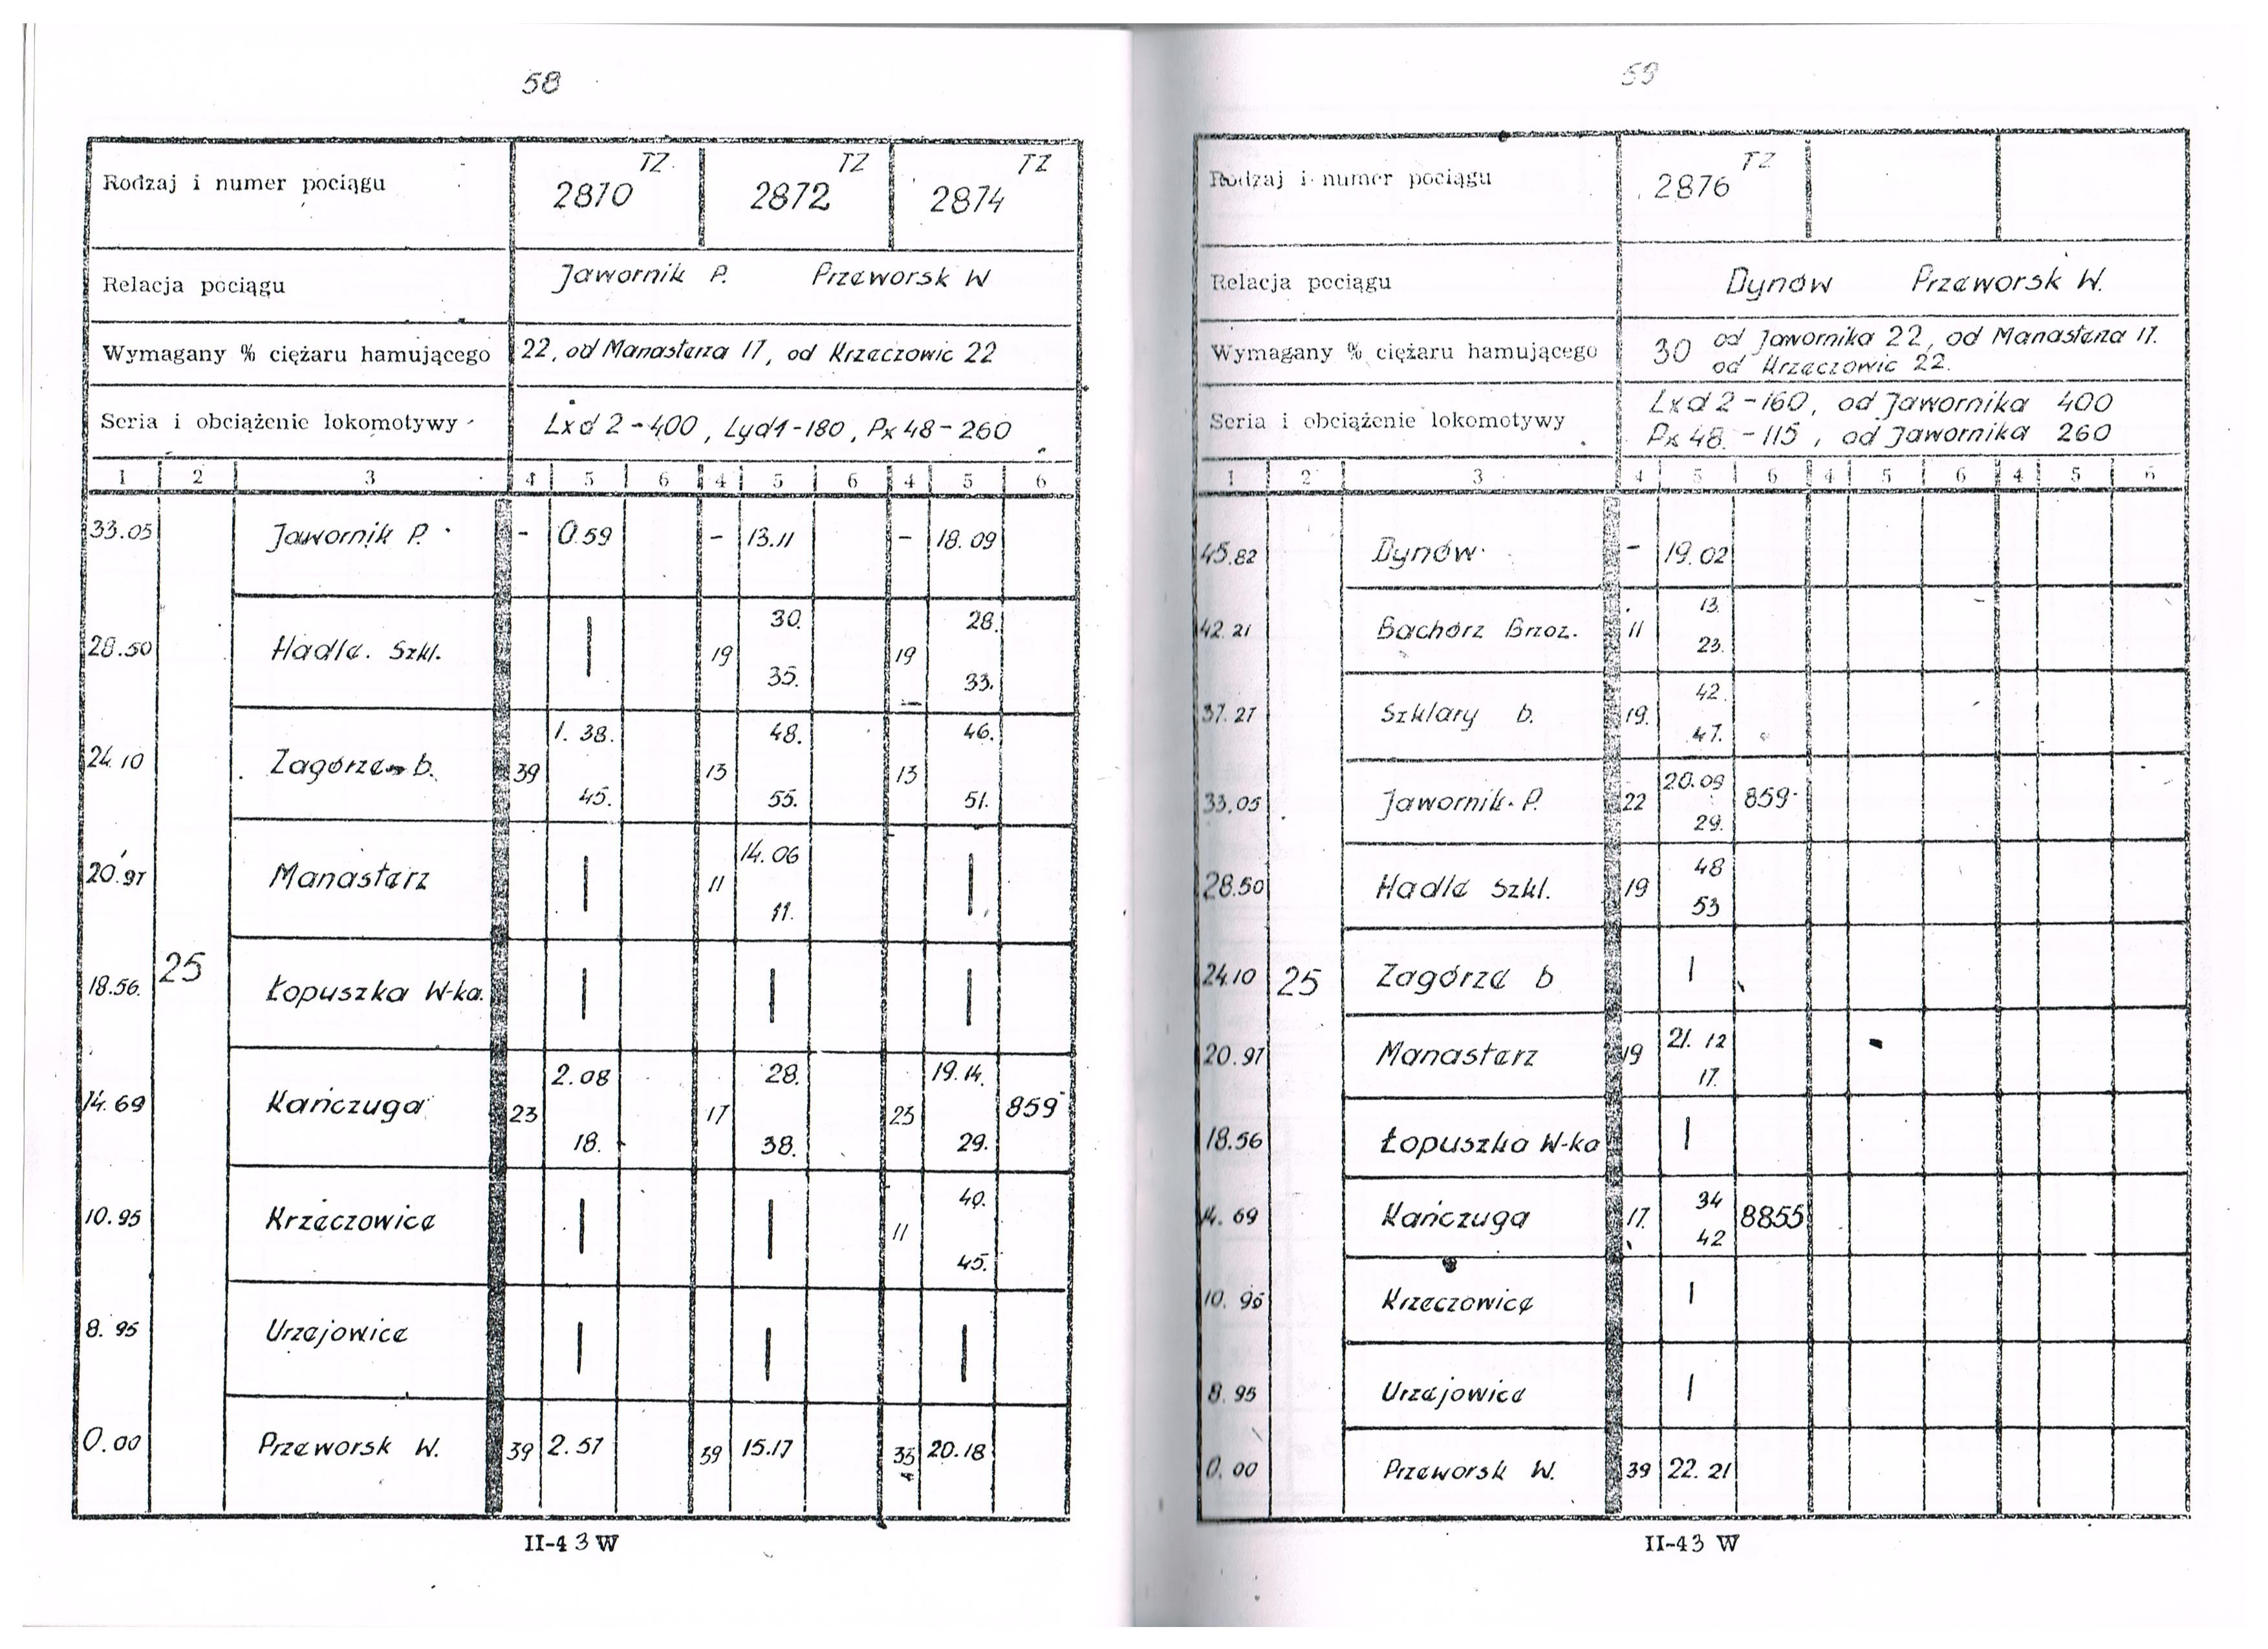 58
Rodzaj i numer pociągu
TZ TZ TZ
2870 2872 2874
Relacja pociągu Jawornik P. Przeworsk W
Wymagany % ciężaru hamującego 22, od Manasterza 17, od Krzeczowic 22
Seria i obciążenie lokomotywy Lxd 2-400, Lyd1-180, Px 48-260
1 2 3 4 5 6 4 5 6 4 5 6
33.05 Jawornik P. - 0.59 - 13.11 - 18.09
30. 28.
28.50 Hadle. Szkl. | 19 19
35. 33.
1. 38. 48. 46.
24.10 Zagórze b. 39 13 13
45. 55. 51.
14.06
20.97 Manasterz | 11 |
11.
25
18.56. Łopuszka W-ka. | | |
2.08 28. 19.14.
14.69 Kańczuga 23 17 23 859
18. 38. 29.
40.
10.95 Krzeczowice | | 11
45.
8.95 Urzejowice | | |
0.00 Przeworsk W. 39 2.57 39 15.17 33 20.18
II-43 W
59
Rodzaj i numer pociągu
TZ
2876
Relacja pociągu Dynów Przeworsk W.
Wymagany % ciężaru hamującego 30 od Jawornika 22, od Manasterza 17.
od Krzeczowic 22.
Seria i obciążenie lokomotywy
Lxd 2-160, od Jawornika 400
Px 48 -115, od Jawornika 260
1 2 3 4 5 6 4 5 6 4 5 6
45.82 Dynów - 19.02
13.
42.21 Bachórz Brzoz. 11
23.
42.
37.27 Szklary b. 19.
47.
20.09
33.05 Jawornik P. 22 859
29.
48
28.50 Hadle Szkl. 19
53
24.10 25 Zagórze b |
21. 12
20.97 Manasterz 19
17.
18.56 Łopuszka W-ka |
34
14.69 Kańczuga 17. 8855
42
10.95 Krzeczowice |
8.95 Urzejowice |
0.00 Przeworsk W. 39 22.21
II-43 W